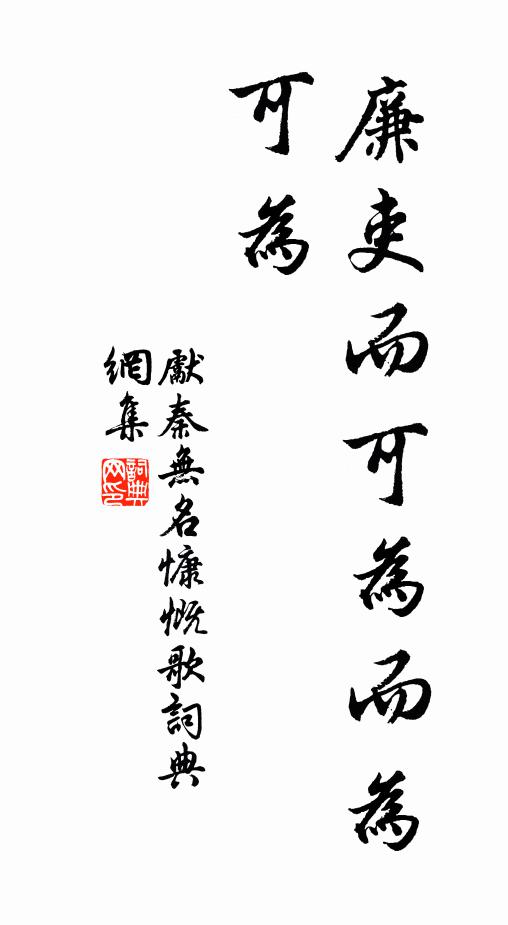 廉吏而可為而為
可為
獻秦無名慷慨歌詞典
網集
詞典
网印